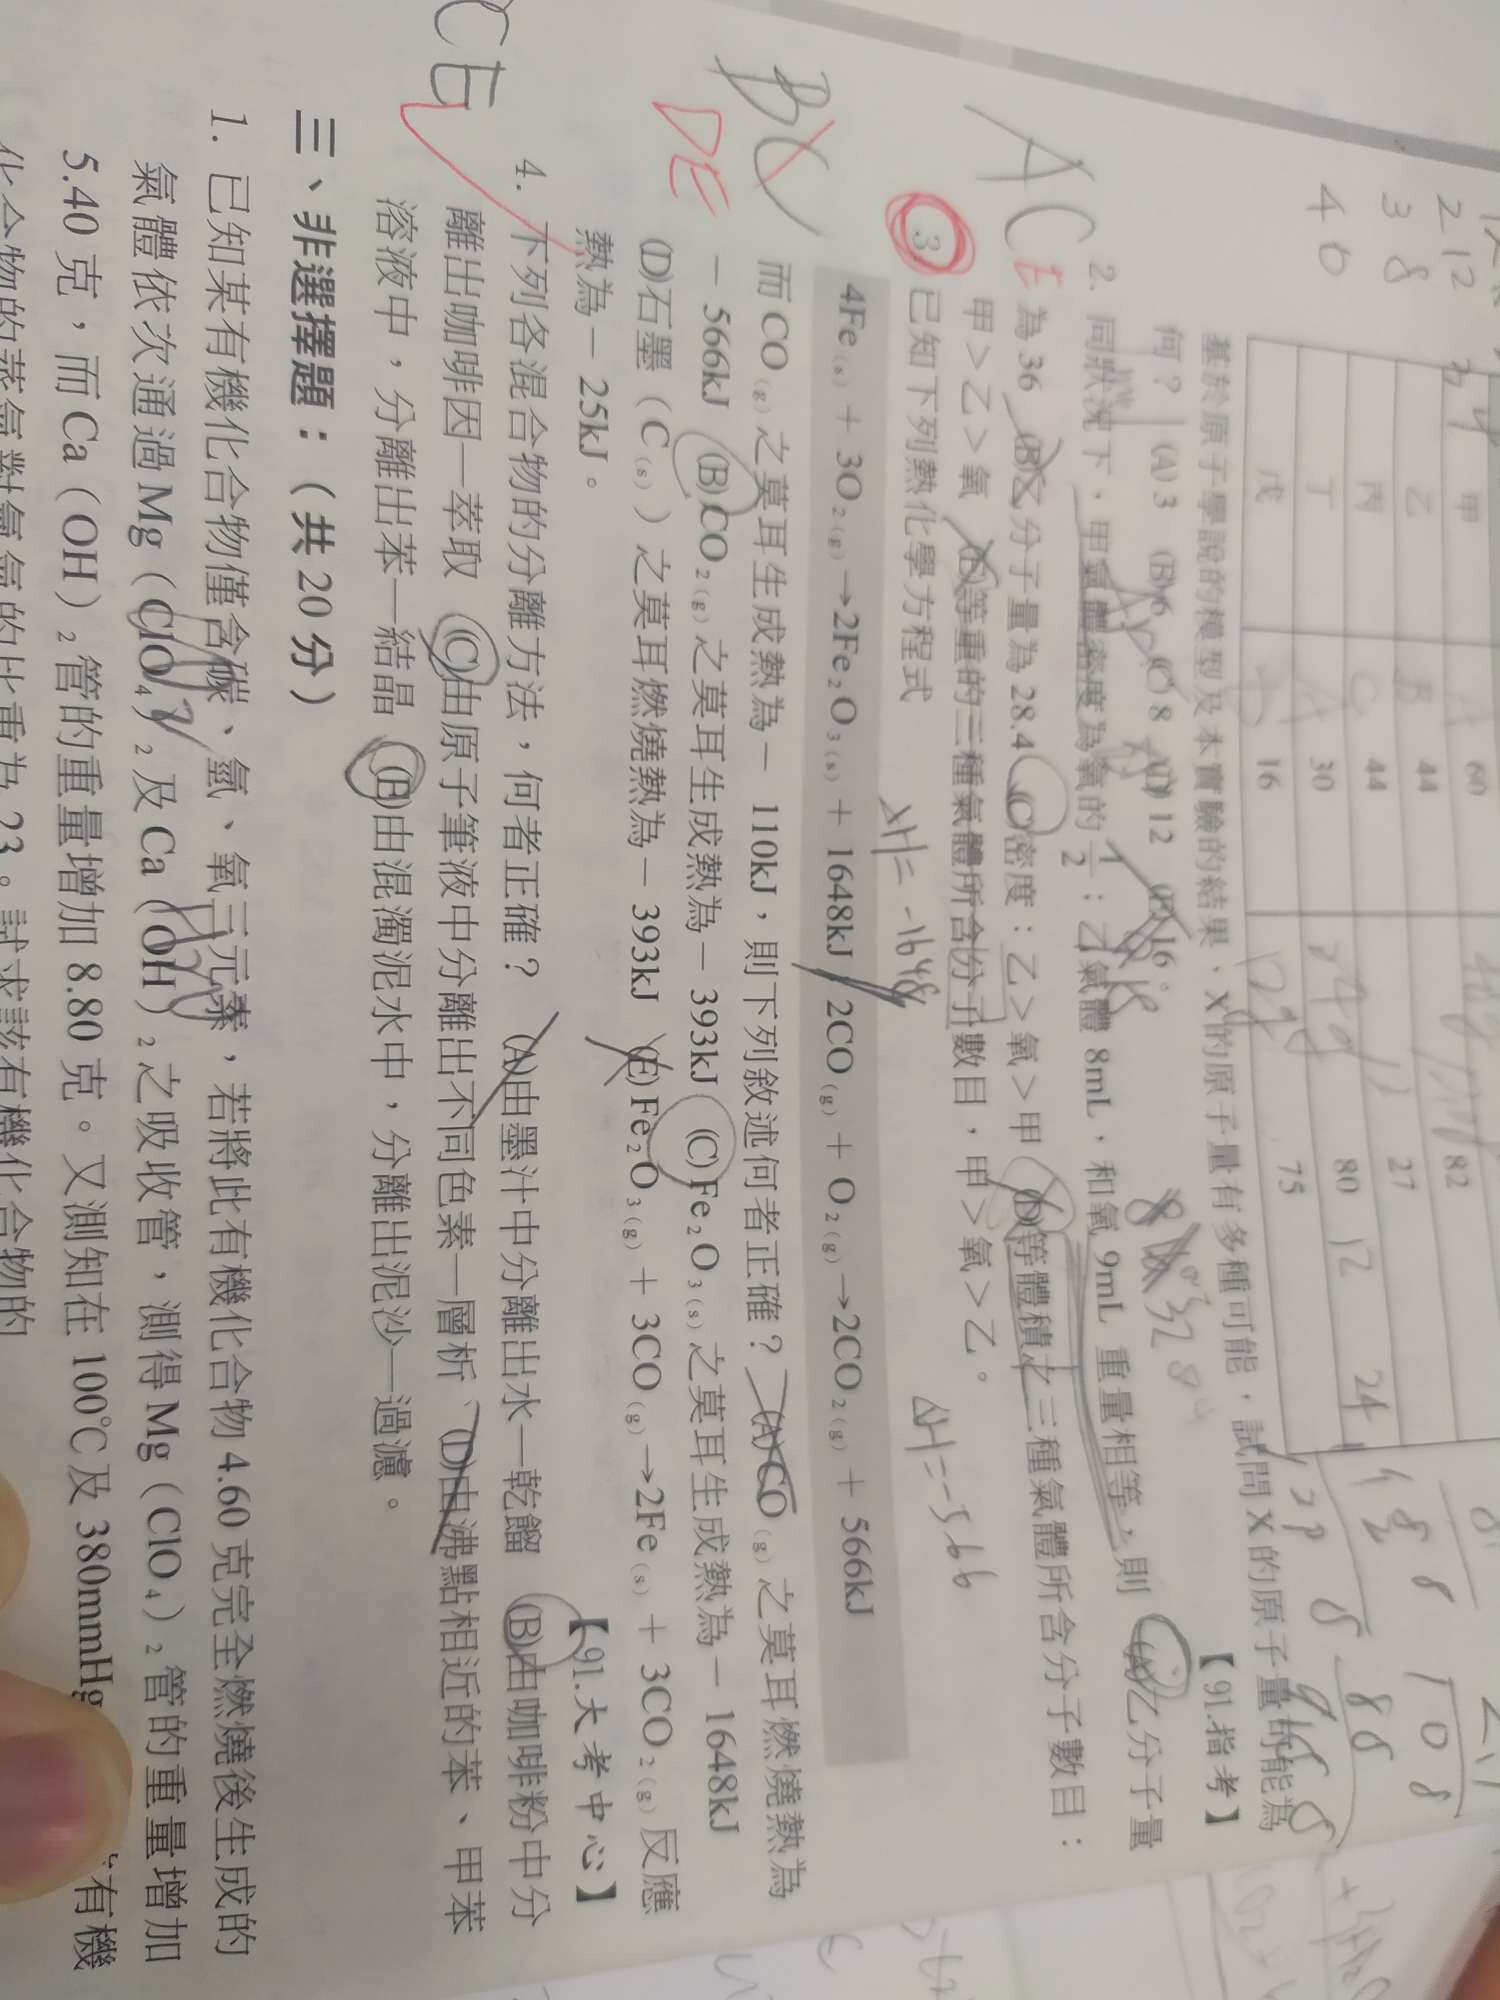 甲 60 82
乙 44 27
丙 44 12
丁 30 80 12 24
戊 16 75
基於原子學說的模型及本實驗的結果,X的原子量有多種可能,試問X的原子量可能為
何? (A)3 (B)6 (C)8 (D)12 (E)16 【91.指考】
ACE
2. 同狀況下,甲氣體密度為氧的1/2;乙氣體 8mL,和氧 9mL 重量相等,則 (A)乙分子量
為 36 (B)乙分子量為 28.4 (C)密度:乙>氧>甲 (D)等體積之三種氣體所含分子數目:
甲>乙>氧 (E)等重的三種氣體所含分子數目,甲>氧>乙。
3 已知下列熱化學方程式
ΔH=-1648 ΔH=-566
4Fe(s)+3O2(g)→2Fe2O3(s)+1648kJ 2CO(g)+O2(g)→2CO2(g)+566kJ
BC
DE
而 CO(g)之莫耳生成熱為-110kJ,則下列敘述何者正確? (A)CO(g)之莫耳燃燒熱為
-566kJ (B)CO2(g)之莫耳生成熱為-393kJ (C)Fe2O3(s)之莫耳生成熱為-1648kJ
(D)石墨(C(s))之莫耳燃燒熱為-393kJ (E)Fe2O3(g)+3CO(g)→2Fe(s)+3CO2(g)反應
熱為-25kJ。 【91.大考中心】
CE
4. 下列各混合物的分離方法,何者正確? (A)由墨汁中分離出水—乾餾 (B)由咖啡粉中分
離出咖啡因—萃取 (C)由原子筆液中分離出不同色素—層析 (D)由沸點相近的苯、甲苯
溶液中,分離出苯—結晶 (E)由混濁泥水中,分離出泥沙—過濾。
三、非選擇題:(共20分)
1. 已知某有機化合物僅含碳、氫、氧三元素,若將此有機化合物 4.60 克完全燃燒後生成的
氣體依次通過 Mg(ClO4)2 及 Ca(OH)2 之吸收管,測得 Mg(ClO4)2 管的重量增加
5.40 克,而 Ca(OH)2 管的重量增加 8.80 克。又測知在 100℃及 380mmHg 有機
化合物的蒸氣對氫氣的比重為 23。試求該有機化合物的